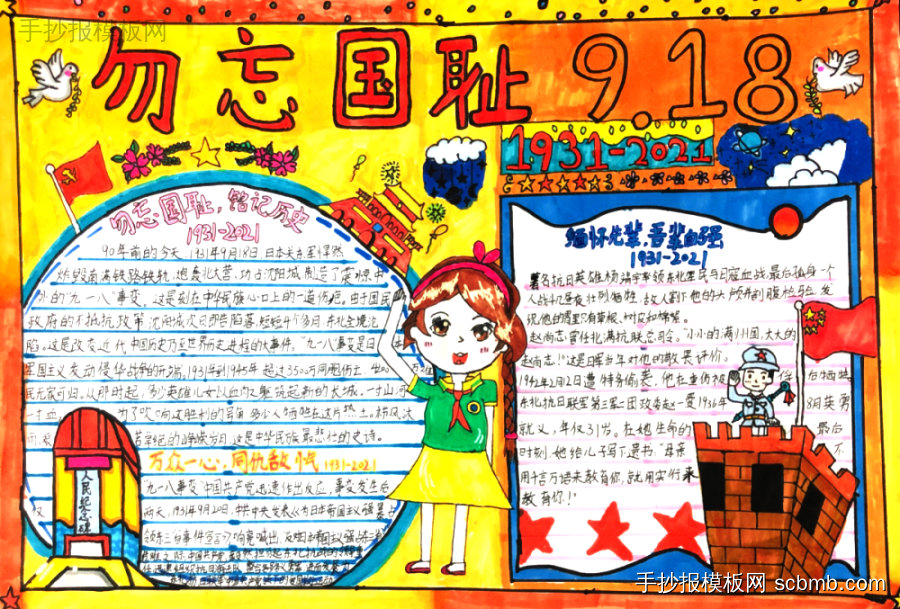 手抄报模板网
勿忘国耻 9.18
1931-2021
勿忘国耻，铭记历史
1931-2021
90年前的今天，1931年9月18日，日本关东军悍然
炸毁南满铁路铁轨，炮轰北大营，攻占沈阳城，制造了震惊中
外的"九一八"事变，这是刻在中华民族心口上的一道伤疤。由于国民
政府的不抵抗政策，沈阳城次日即告陷落，短短4个多月，东北全境沦
陷。这是改变近代中国历史乃至世界历史进程的大事件。"九一八"事变是日
军国主义发动侵华战争的开端，1931年到1945年，超过3500万同胞伤亡
民无家可归。从那时起，多少英雄儿女以血肉之躯筑起新的长城，一寸山河
一寸血
这是中华民族最悲壮的史诗。
万众一心，同仇敌忾 1931-2021
"九一八事变"中国共产党迅速作出反应，事变发生后
两天，1931年9月20日，中共中央发表《为日本帝国主义强暴占
人民纪念碑
缅怀先辈，吾辈自强
1931-2021
著名抗日英雄杨靖宇率领东北军民与日寇血战，最后孤身一个
人战斗几昼夜壮烈牺牲，敌人割下他的头颅并剖腹检验，发
现他的胃里只有草根、树皮和棉絮。
赵尚志曾任北满抗联总司令。"小小的满洲国，大大的
赵尚志！"这是日军当年对他的敬畏评价。
1942年2月2日遭特务偷袭，他在重伤被俘后牺牲
东北抗日联军第三军二团政委赵一曼1936年
就义，年仅31岁。在她生命的最后
时刻，她给儿子写下遗书："母亲不
用千言万语来教育你，就用实行来
教育你！"
手抄报模板网 scbmb.com